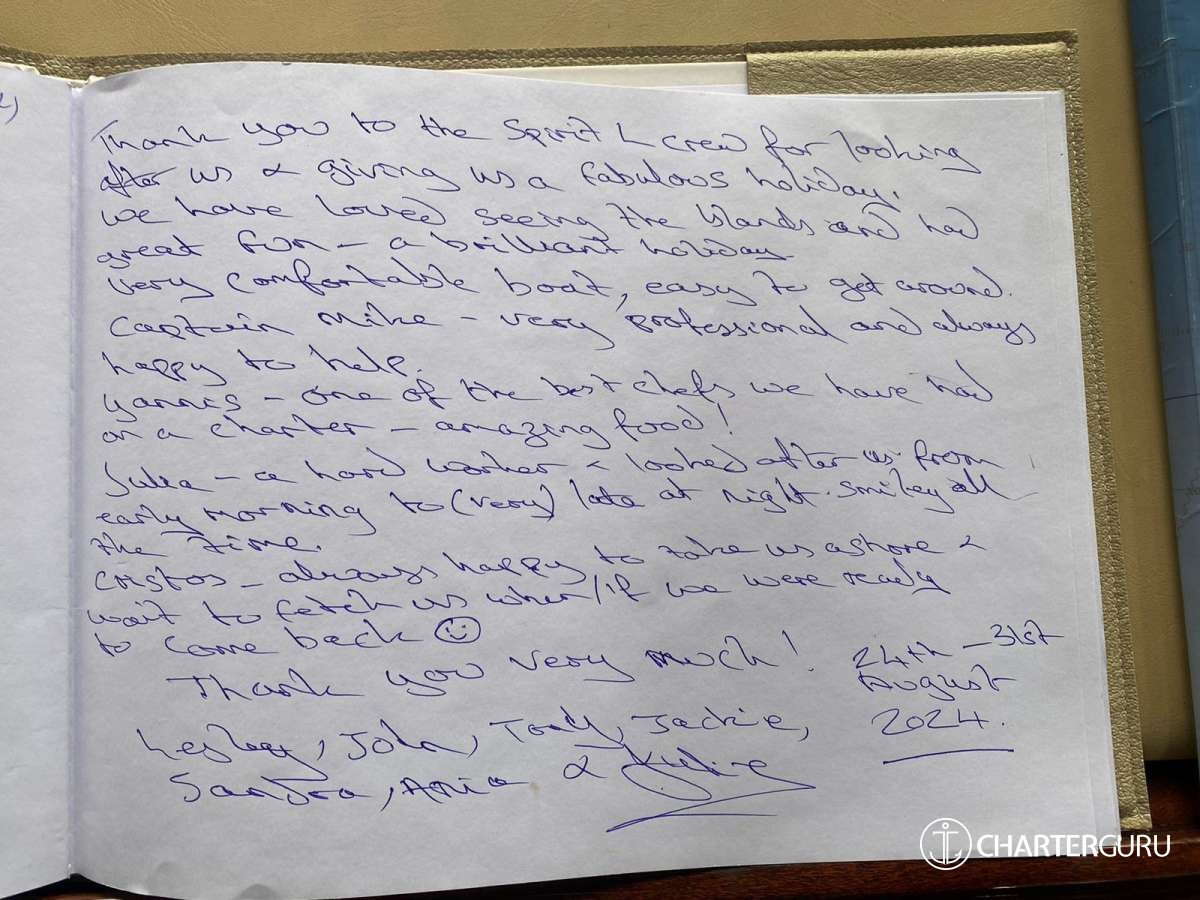 Thank you to the Spirit L crew for looking
after us & giving us a fabulous holiday.
we have loved seeing the Islands and had
great fun - a brilliant holiday.
very comfortable boat, easy to get around.
Captain Mike - very professional and always
happy to help.
Yannis - one of the best chefs we have had
on a charter - amazing food!
Julia - a hard worker & looked after us from
early morning to (very) late at night. smiley all
the time.
Cristos - always happy to take us ashore &
wait to fetch us when/if we were ready
to come back ☺
Thank you very much!
24th - 31st
August
2024.
Lesley, John, Tony, Jackie,
Sandra, Ania & Julie
CHARTERGURU